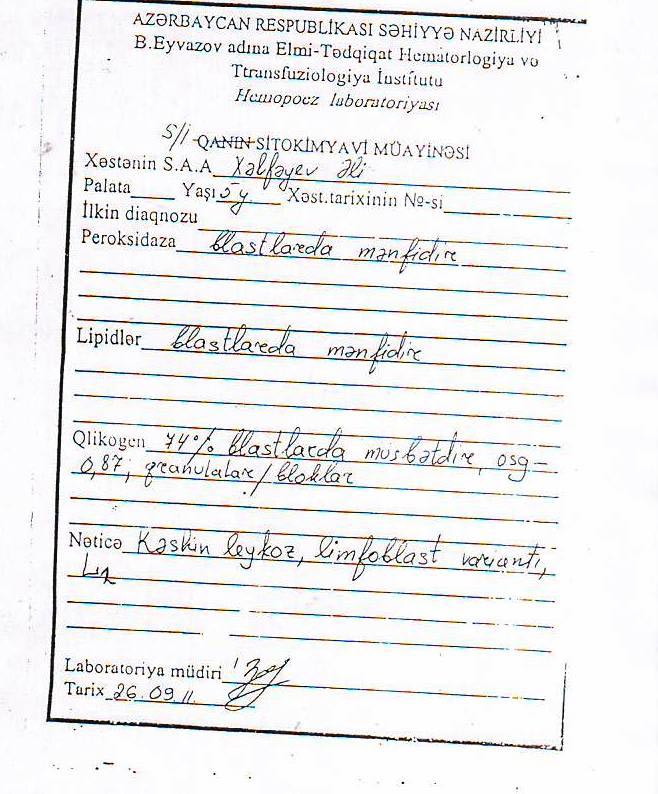 AZƏRBAYCAN RESPUBLİKASI SƏHİYYƏ NAZİRLİYİ
B.Eyvazov adına Elmi-Tədqiqat Hematorlogiya və
Ttransfuziologiya İnstitutu
Hemopoez laboratoriyası
S/i QANIN SİTOKİMYAVİ MÜAYİNƏSİ
Xəstənin S.A.A Xəlfəyev Əli
Palata Yaşı 5y Xəst.tarixinin №-si
İlkin diaqnozu
Peroksidaza blastlarda mənfidir
Lipidlər blastlarda mənfidir
Qlikogen 74% blastlarda müsbətdir, osg-
0,87, qranulalar/bloklar
Nəticə Kəskin leykoz, limfoblast variantı,
L2
Laboratoriya müdiri
Tarix 26.09 11